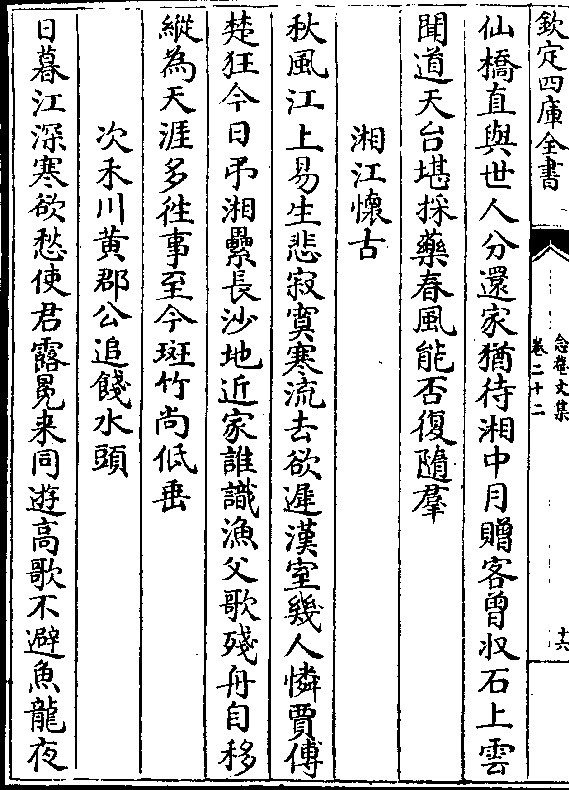 欽定四庫全書
念菴文集
卷二十二
十六
仙橋直與世人分還家猶待湘中月贈客曾収石上雲
聞道天台堪採藥春風能否復隨羣
湘江懷古
秋風江上易生悲寂寞寒流去欲遲漢室幾人憐賈傅
楚狂今日弔湘纍長沙地近家誰識漁父歌殘舟自移
縱為天涯多徃事至今斑竹尚低垂
次禾川黄郡公追餞水頭
日暮江深寒欲愁使君露冕来同遊高歌不避魚龍夜